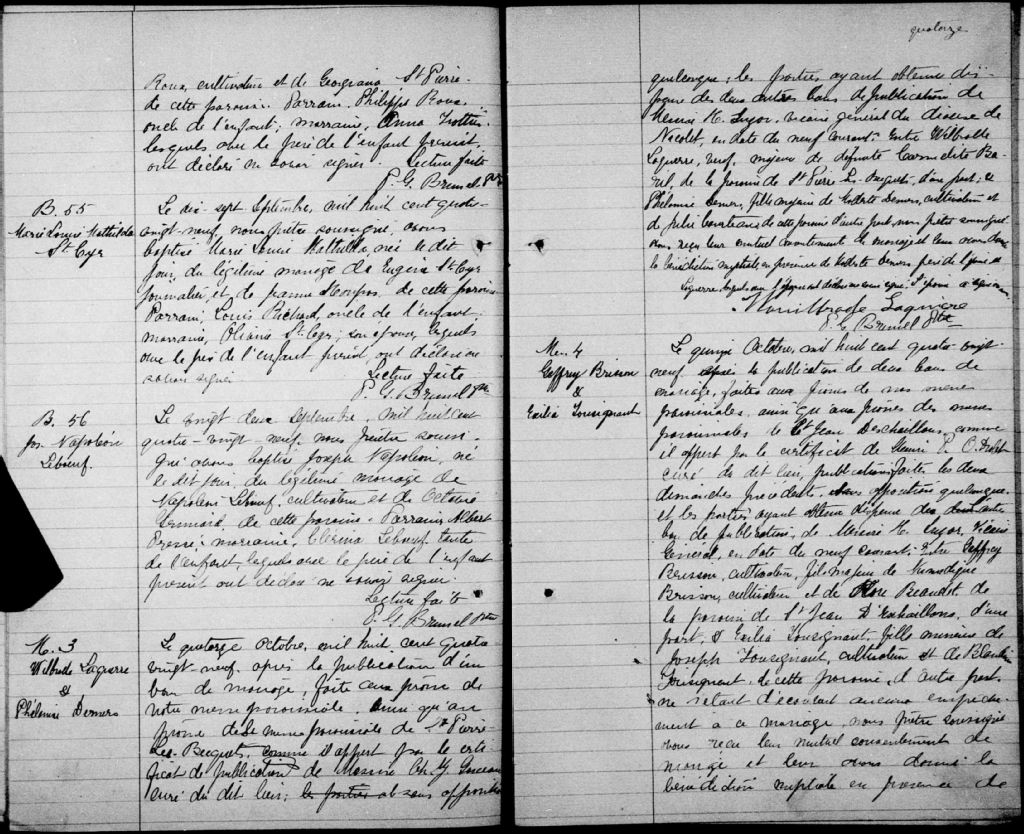 Roux, cultivateur et de Georgiana St Pierre
de cette paroisse. Parrain, Philippe Roux
oncle de l'enfant; marraine, Anna Trottier
lesquels avec le père de l'enfant présent,
ont déclaré ne savoir signer. Lecture faite
P. G. Brunel Ptre
B. 55
Marie Louise Mathilda
St. Cyr
Le dix-sept Septembre, mil huit cent quatre-
vingt-neuf, nous prêtre soussigné, avons
baptisé Marie Louise Mathilda, née le dit
jour, du légitime mariage de Eugène St-Cyr
journalier, et de de cette paroisse
Parrain; Louis Richard, oncle de l'enfant;
marraine, St-Cyr; son épouse, lesquels
avec le père de l'enfant présent, ont déclaré ne
savoir signer.
Lecture faite
P. G. Brunel Ptre
B. 56
Jos. Napoléon
Leboeuf.
Le vingt deux Septembre, mil huit cent
quatre-vingt-neuf, nous Prêtre soussi-
gné avons baptisé Joseph Napoléon, né
le dit jour, du légitime mariage de
Napoléon Leboeuf, cultivateur et de
de cette paroisse. Parrain Albert
marraine, Leboeuf tante
de l'enfant lesquels avec le père de l'enfant
présent ont déclaré ne savoir signer.
Lecture faite
P. G. Brunel Ptre
M. 3
Laguerre
&
Demers
Le quatorze Octobre, mil huit cent quatre
vingt-neuf, après la publication d'un
ban de mariage, faite au prône de
notre messe paroissiale, ainsi qu'au
prône de la messe paroissiale de St Pierre-
Les-Becquets, comme il appert par le certi-
ficat de publication de Messire
curé du dit lieu; les parties et sans opposition
quatorze
quelconque; les parties ayant obtenu dis-
pense des deux autres bans de publication de
Messire vicaire général du diocèse de
Nicolet, en date du neuf courant. Entre
Laguerre, veuf, majeur de défunte
de la paroisse de St Pierre les Becquets, d'une part; et
Demers, fille majeure de Demers, cultivateur et
de Julie de cette paroisse d'autre part, nous, prêtre soussigné
avons reçu leur mutuel consentement de mariage et leur avons donné
la bénédiction nuptiale en présence de Demers père de l'épouse
Laguerre
P. G. Brunel Ptre
M. 4
Geffrey Brisson
&
Exilia Tousignant
Le quinze Octobre, mil huit cent quatre-vingt-
neuf, après la publication de deux bans de
mariage, faites aux prônes de nos messes
paroissiales, ainsi que aux prônes des messes
paroissiales de St Jean Deschaillons, comme
il appert par le certificat de Messire P. O.
curé du dit lieu, publications faites les deux
dimanches précédents, sans opposition quelconque.
et les parties ayant obtenu dispense du autre
ban de publication, de Messire Vicaire
Général, en date du neuf courant; Entre Geffrey
Brisson, cultivateur, fils majeur de
Brisson, cultivateur et de Beaudet, de
la paroisse de St Jean D'Echaillons, d'une
part, & Exilia Tousignant, fille mineure de
Joseph Tousignant, cultivateur et de
Tousignant, de cette paroisse, d'autre part,
ne s'étant découvert aucun empêche-
ment à ce mariage, nous, prêtre soussigné
avons reçu leur mutuel consentement de
mariage et leur avons donné la
bénédiction nuptiale en présence de